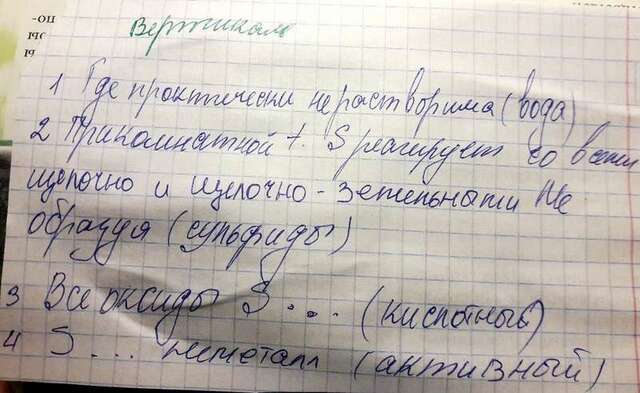 по-
ры
ы
Вертикаль
1 Где практически нерастворима (вода)
2 При комнатной t. S реагирует со всеми
щелочно и щелочно-земельными Ме
образуя (сульфиды)
3 Все оксиды S ... (кислотные)
4 S ... неметалл (активный)